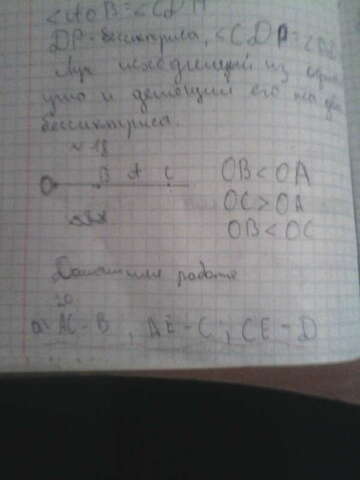 <AOB=<CD
DP-бессиктриса, <CDP=<
Луч исходящий из
угла и делящий его на
бессиктриса.
№ 18
O B A C
OB<OA
OC>OA
OB<OC
Домашняя работа
20
AC-B, AE-C, CE-D